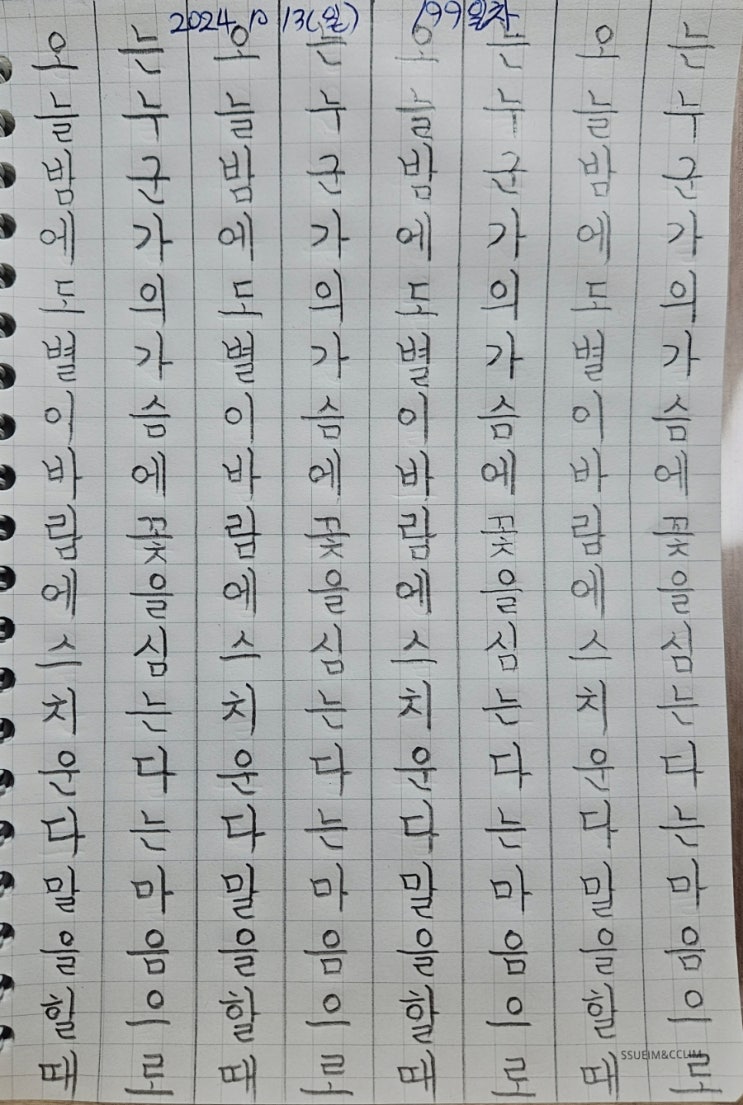 2024 13(월) 199일차
오늘밤에도별이바람에스치운다말을할때
는누군가의가슴에꽃을심는다는마음으로
오늘밤에도별이바람에스치운다말을할때
는누군가의가슴에꽃을심는다는마음으로
오늘밤에도별이바람에스치운다말을할때
는누군가의가슴에꽃을심는다는마음으로
오늘밤에도별이바람에스치운다말을할때
는누군가의가슴에꽃을심는다는마음으로
SSUEIM&CCLIM